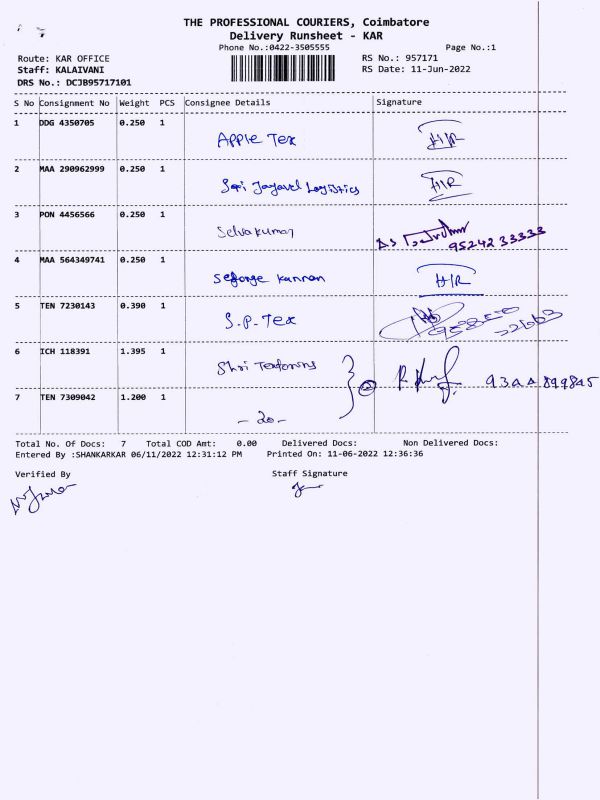 THE PROFESSIONAL COURIERS, Coimbatore
Delivery Runsheet - KAR
Phone No.:0422-3505555 Page No.:1
Route: KAR OFFICE RS No.: 957171
Staff: KALAIVANI RS Date: 11-Jun-2022
DRS No.: DCJB95717101
S No Consignment No Weight PCS Consignee Details Signature
1 DDG 4350705 0.250 1 Apple Tex HR
2 MAA 290962999 0.250 1 Sri Jayavel Logistics HR
3 PON 4456566 0.250 1 Selvakumar 95242 33333
4 MAA 564349741 0.250 1 kannan HR
5 TEN 7230143 0.390 1 S.P. Tex
6 ICH 118391 1.395 1 Shri 2
7 TEN 7309042 1.200 1 - do -
Total No. Of Docs: 7 Total COD Amt: 0.00 Delivered Docs: Non Delivered Docs:
Entered By :SHANKARKAR 06/11/2022 12:31:12 PM Printed On: 11-06-2022 12:36:36
Verified By Staff Signature